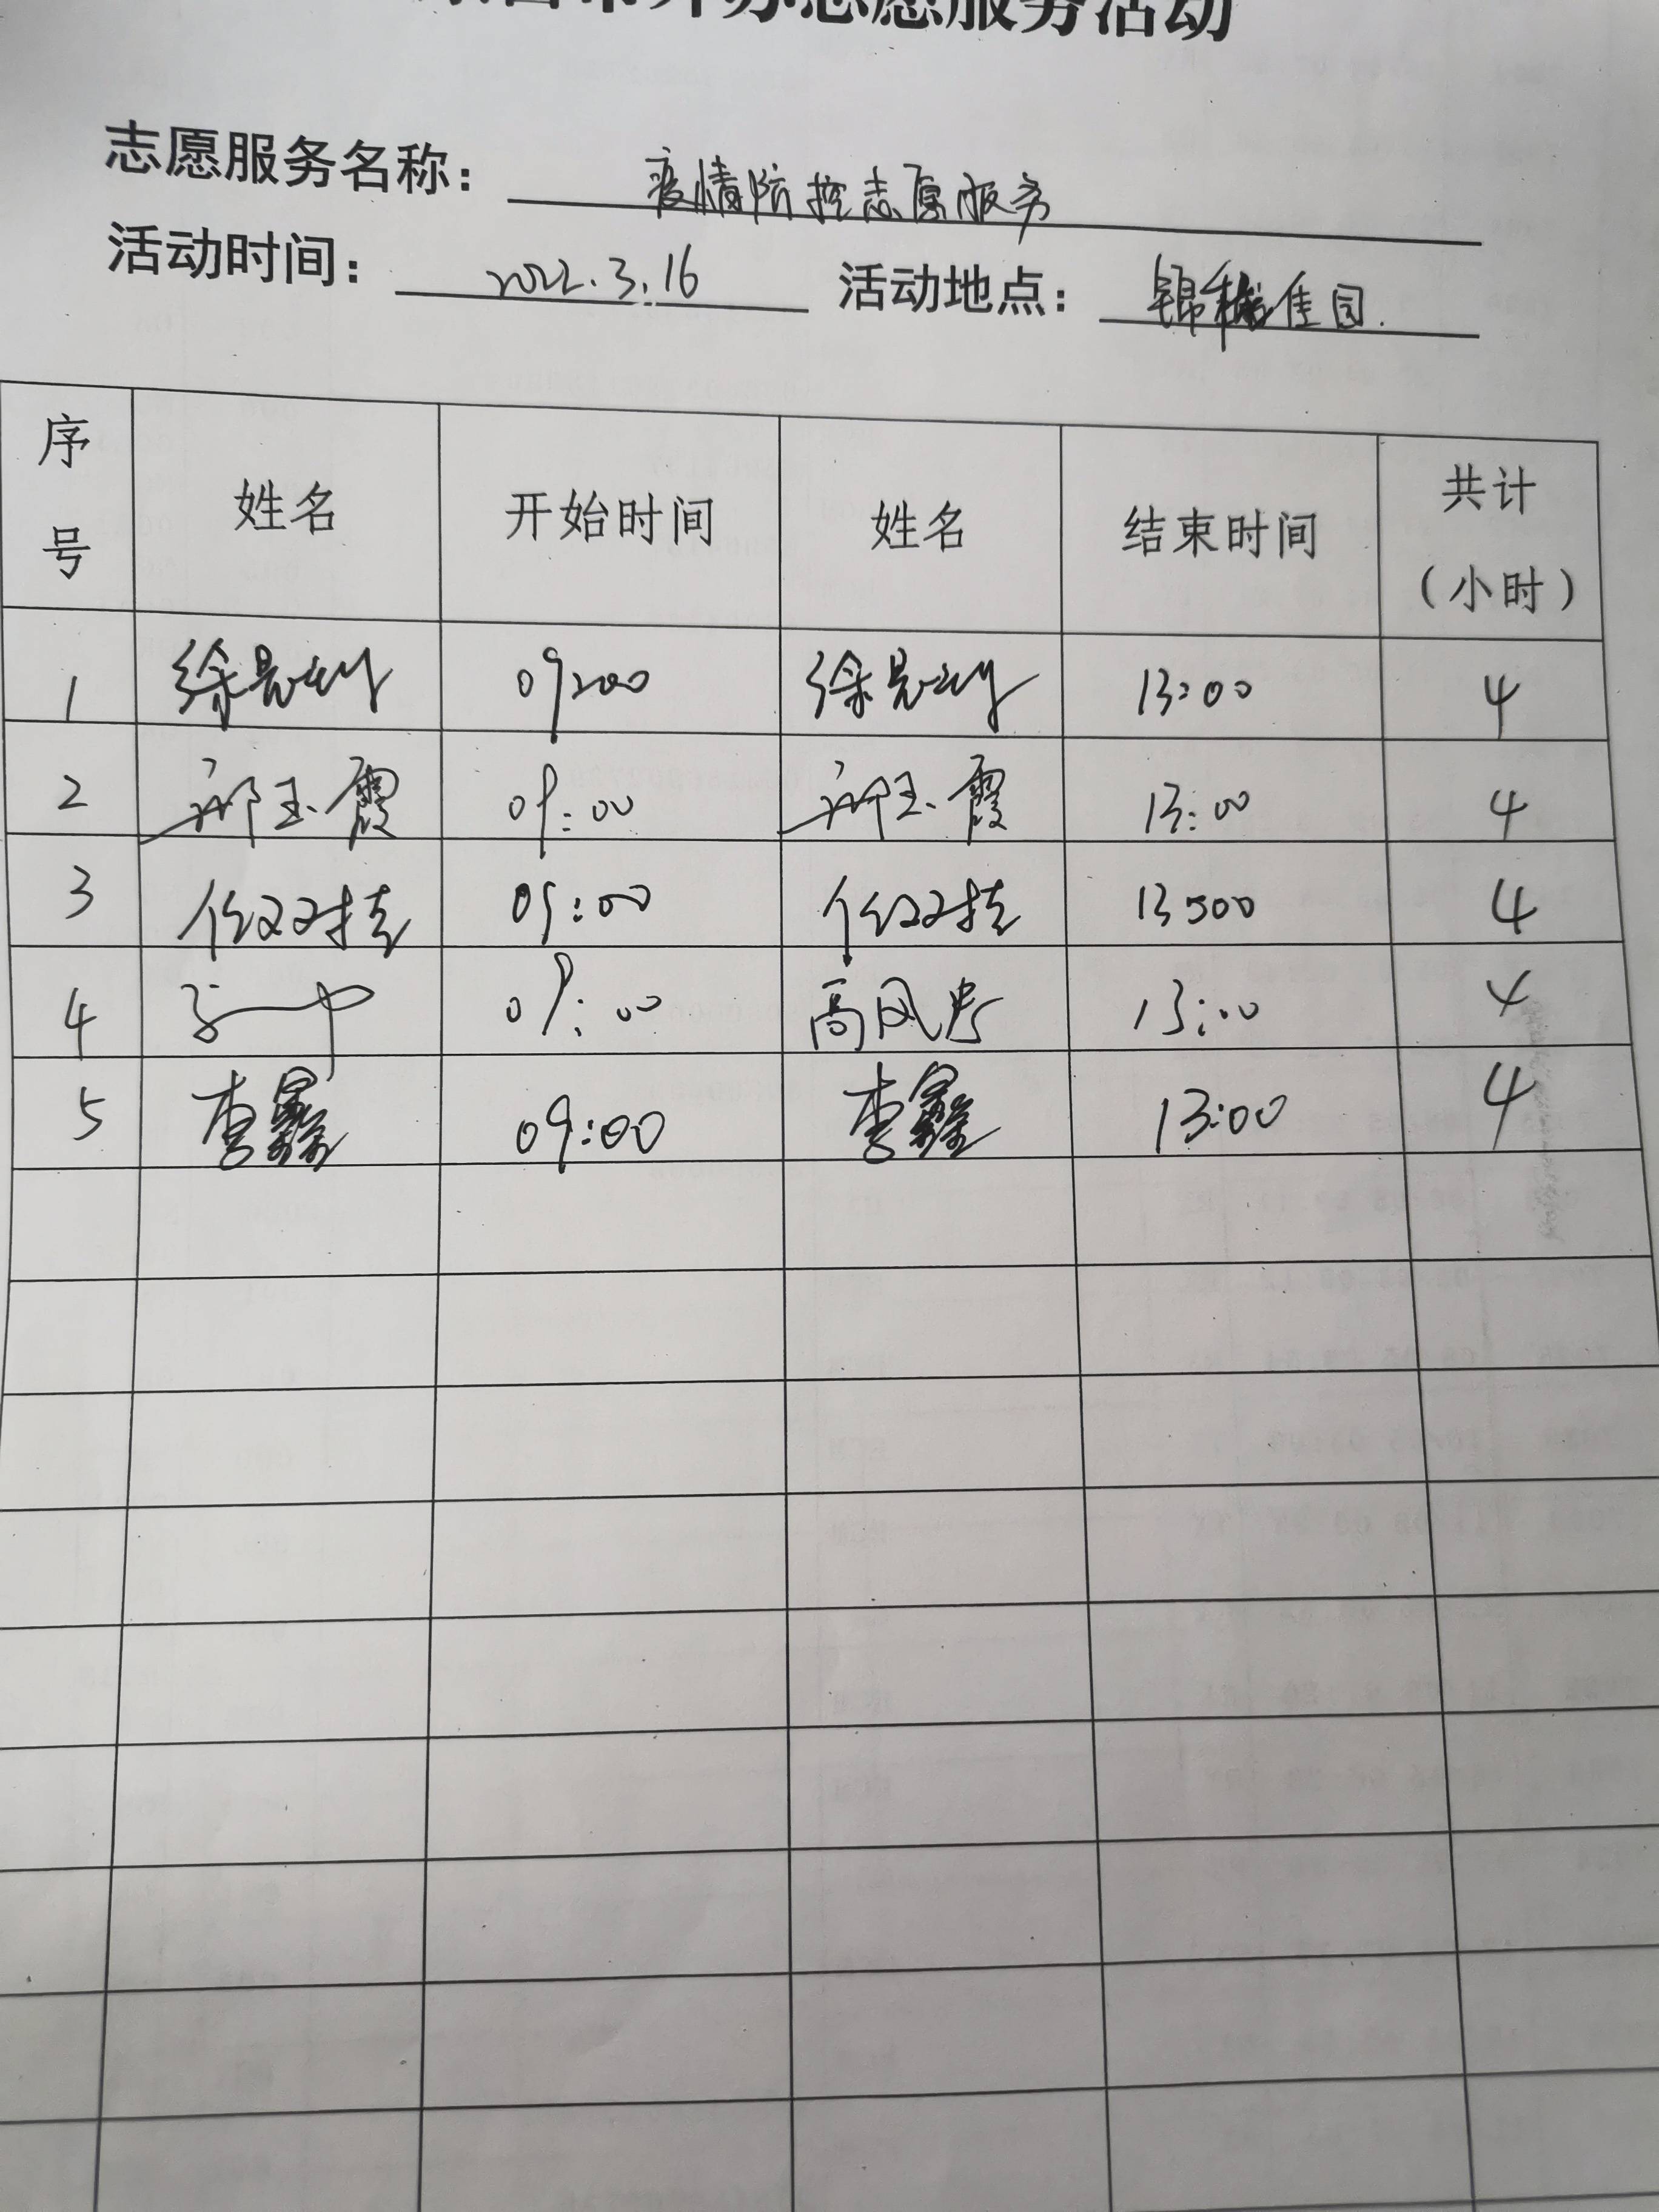 志愿服务活动
志愿服务名称： 疫情防控志愿服务
活动时间： 2022.3.16 活动地点： 锦绣佳园.
序号 姓名 开始时间 姓名 结束时间 共计（小时）
1 徐 09:00 徐 13:00 4
2 玉霞 09:00 玉霞 13:00 4
3 09:00 13:00 4
4 09:00 高风 13:00 4
5 李鑫 09:00 李鑫 13:00 4